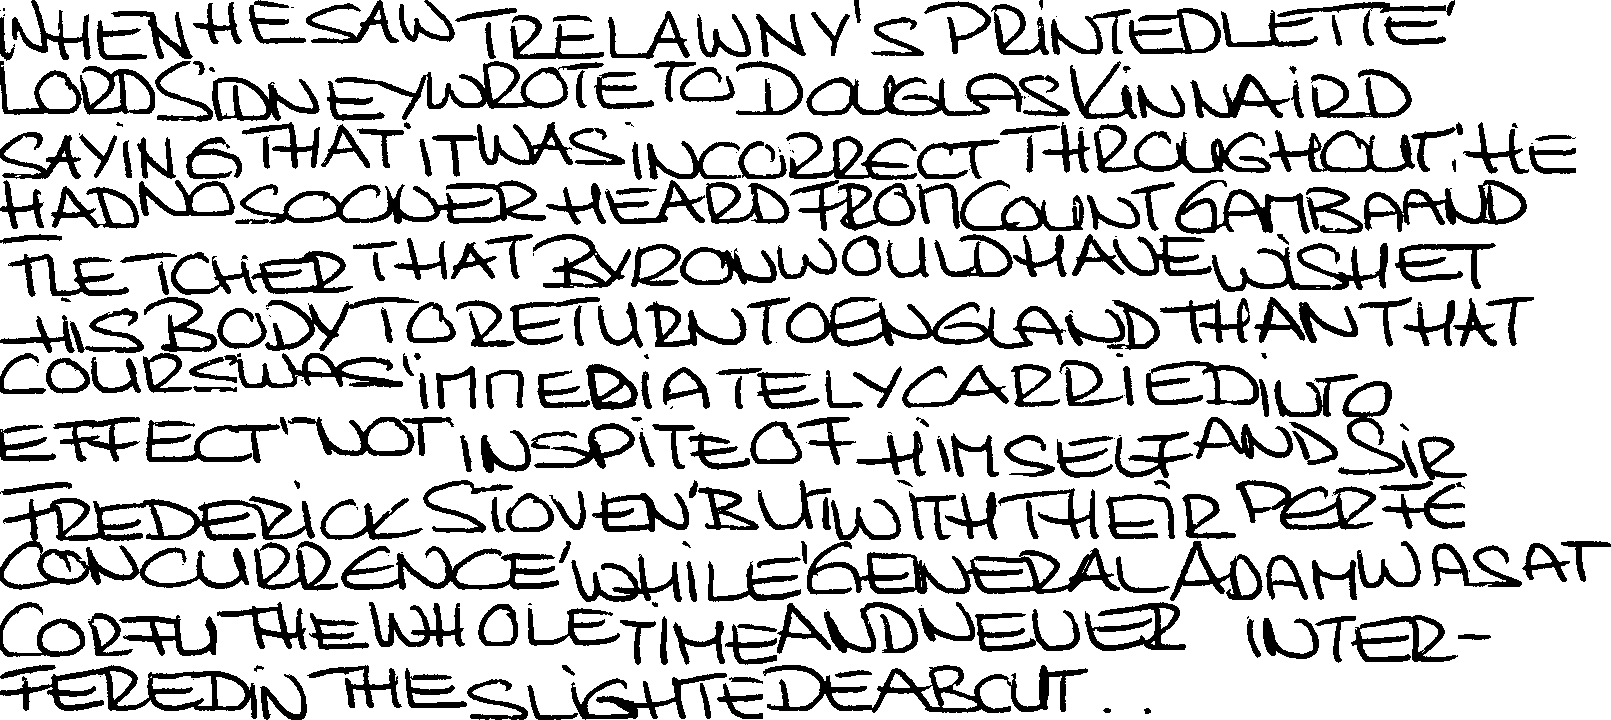 WHEN HE SAW TRELAWNY'S PRINTED LETTE'
LORD SIDNEY WROTE TO DOUGLAS KINNAIRD
SAYING THAT IT WAS INCORRECT THROUGHOUT. 'HE
HAD NO SOONER HEARD FROM COUNT GAMBA AND
FLETCHER THAT BYRON WOULD HAVE WISHET
HIS BODY TO RETURN TO ENGLAND THAN THAT
COURS WAS 'IMMEDIATELY CARRIED INTO
EFFECT' 'NOT IN SPITE OF HIMSELF AND SIR
FREDERICK STOVEN' BUT 'WITH THEIR PERFE
CONCURRENCE' WHILE 'GENERAL ADAM WAS AT
CORFU THE WHOLE TIME AND NEVER INTER-
FERED IN THE SLIGHTE DE ABOUT . .